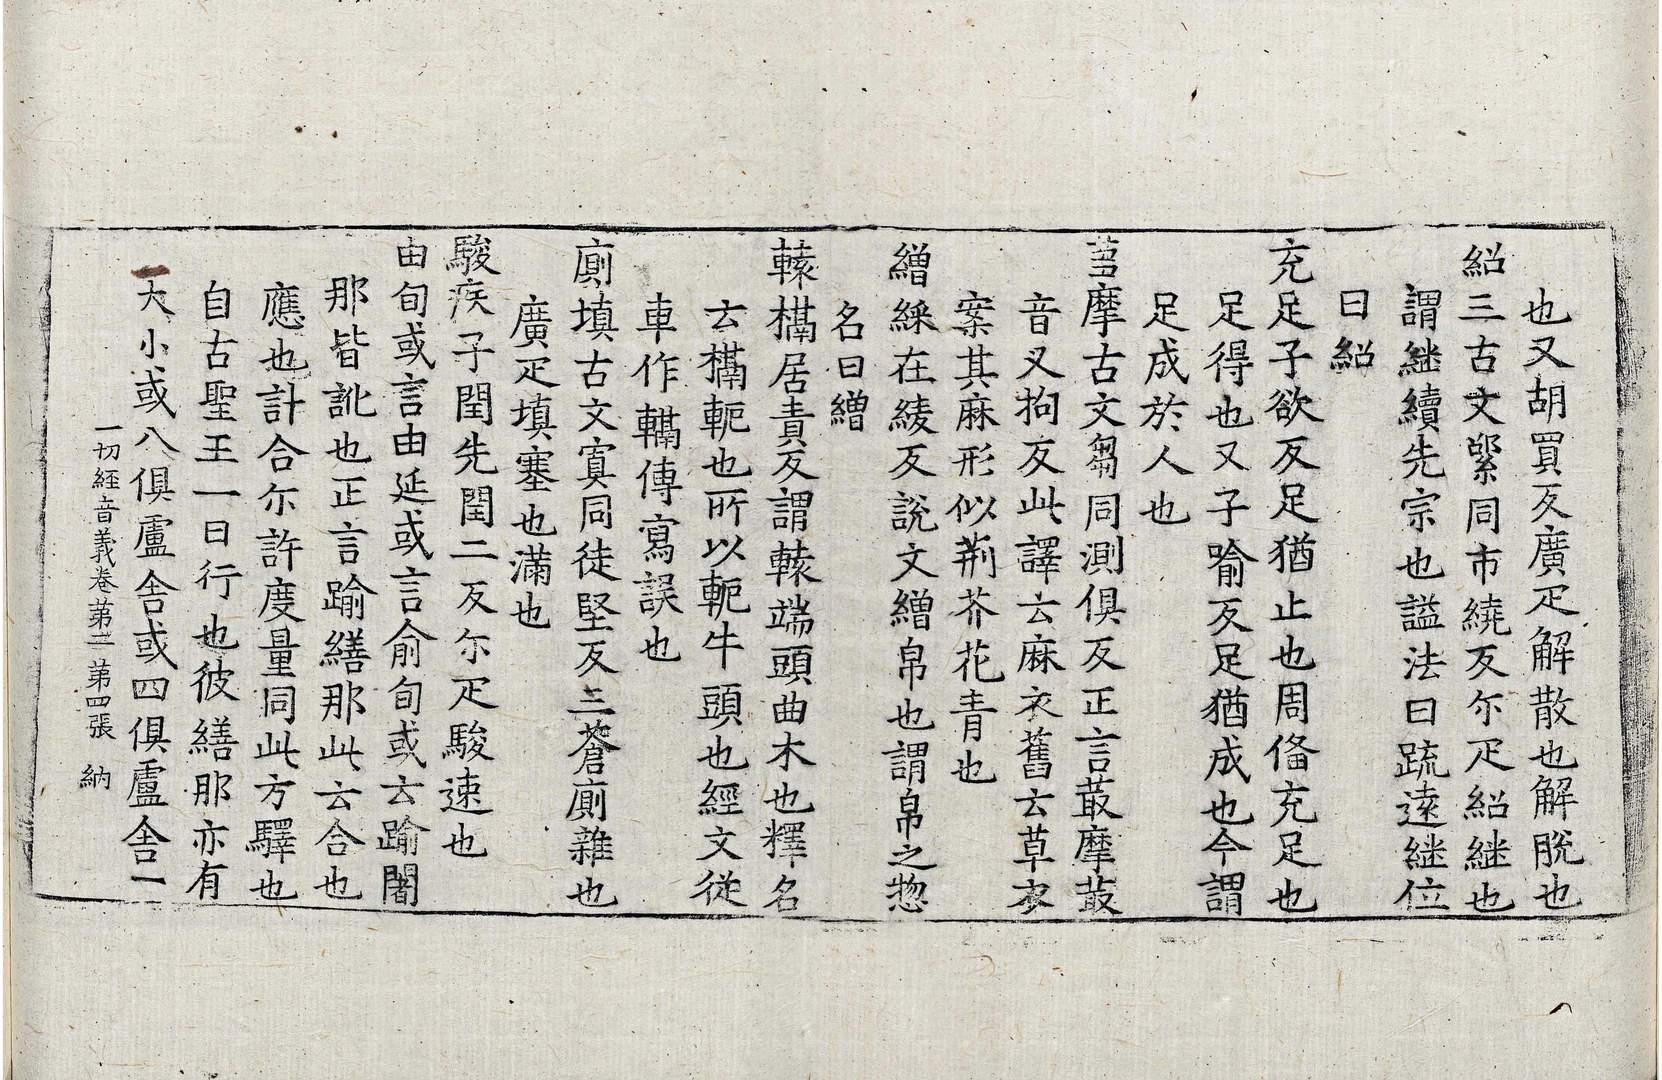 也又胡買反廣疋解散也解脫也
紹三古文綤同市繞反尒疋紹継也
謂継續先宗也謚法曰踈遠継位
曰紹
充足子欲反足猶止也周俻充足也
足得也又子喻反足猶成也今謂
足成於人也
芻摩古文䅳同測俱反正言菆摩菆
音叉拘反此譯云麻衣舊云草衣
案其麻形似荊芥花青也
繒綵在綾反說文繒帛也謂帛之惣
名曰繒
轅槅居責反謂轅端頭曲木也釋名
云槅軛也所以軛牛頭也經文從
車作轎傳寫誤也
廁填古文寘同徒堅反三蒼廁雜也
廣疋填塞也滿也
駿疾子閏先閏二反尒疋駿速也
由旬或言由延或言俞旬或云踰闍
那皆訛也正言踰繕那此云合也
應也計合尒許度量同此方驛也
自古聖王一日行也彼繕那亦有
大小或八俱盧舍或四俱盧舍一
一切經音義卷第二　第四張　納